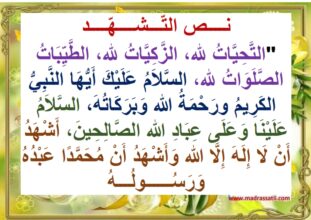 نــص التَّــشــهُّــد
"التَّحِيَّاتُ لله، الزَّكِيَّاتُ لله، الطَّيِّبَاتُ
الصَّلَوَاتُ لله، السَّلاَمُ عَلَيْكَ أَيُّهَا النَّبِيُّ
الكَرِيمُ ورَحْمَةُ الله وَبَرَكَاتُهُ، السَّلاَمُ
عَلَيْنَا وَعَلَى عِبَادِ الله الصَّالِحِينَ، أَشْهَدُ
أَنْ لَا إِلَهَ إِلَّا الله وَأَشْهَدُ أَنْ مُحَمَّدًا عَبْدُهُ
وَرَســـولُـــهُ
www.madrassatii.com